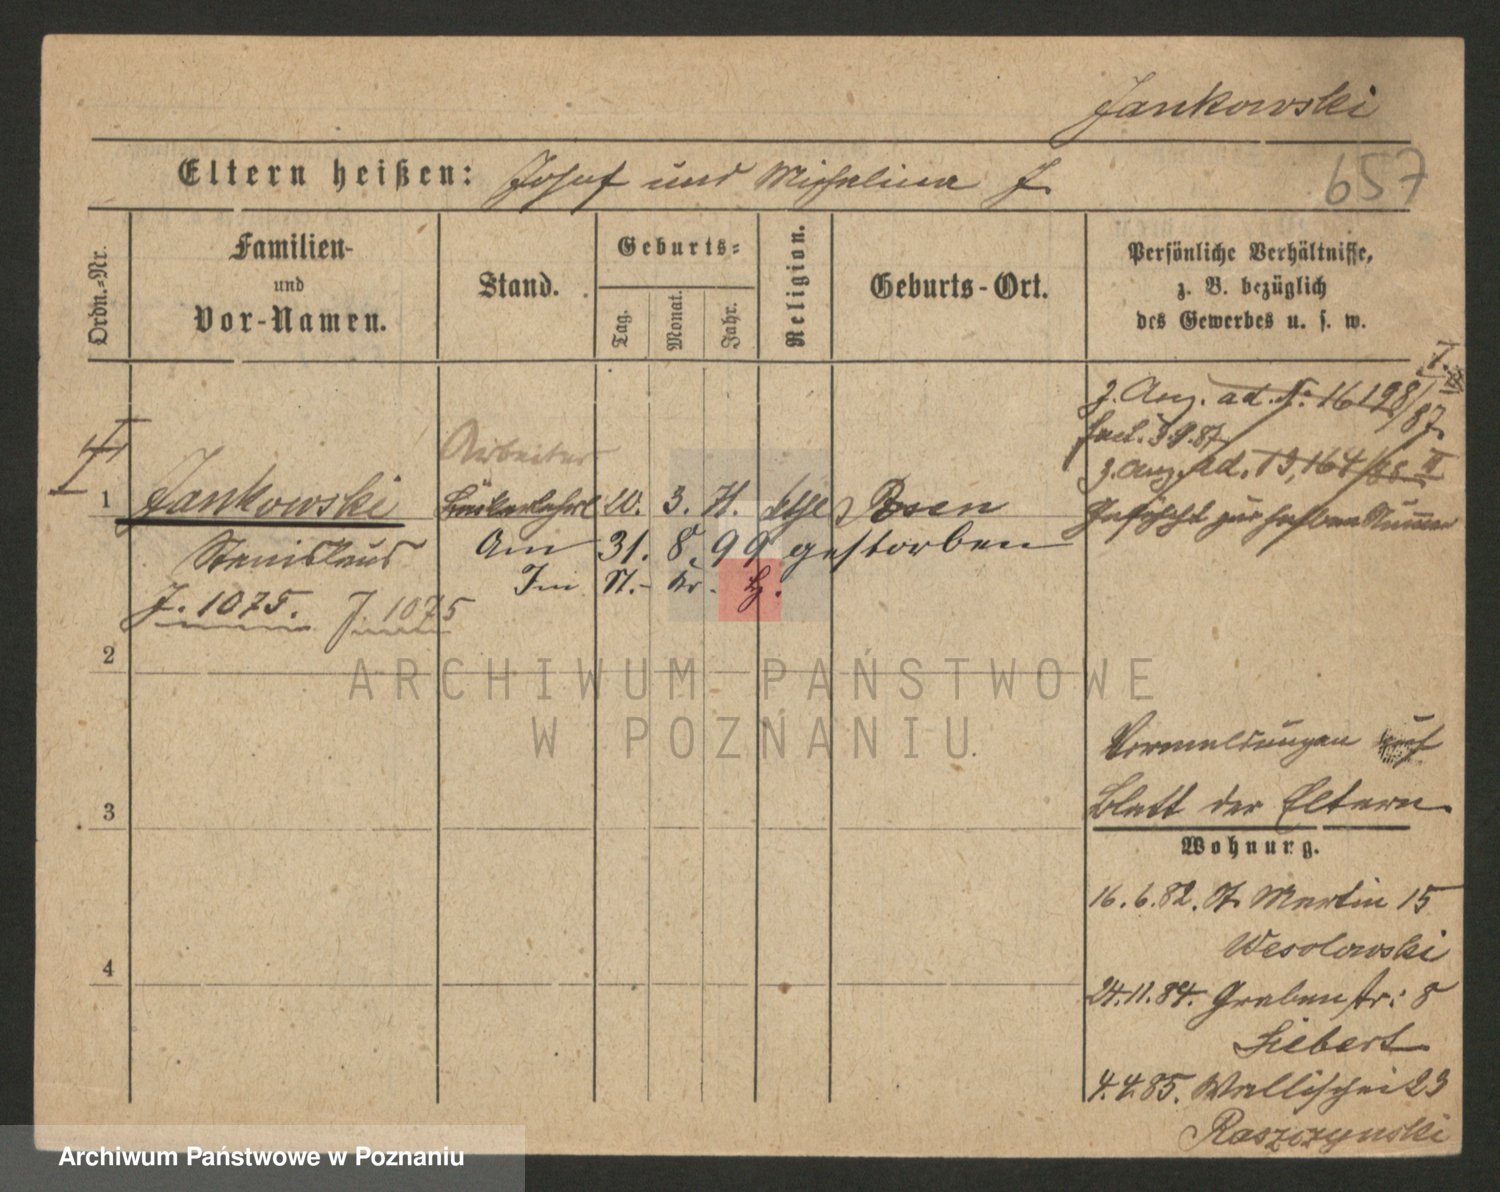 Jankowski
Eltern heißen: Josef und Michalina J.
657
Ordn.-Nr.
Familien-
und
Vor-Namen.
Stand.
Geburts-
Tag.
Monat.
Jahr.
Religion.
Geburts-Ort.
Persönliche Verhältnisse,
z. B. bezüglich
des Gewerbes u. s. w.
z. Anz. ad. No 16198/87.
z. Anz. ad. 13,164/88 II
Arbeiter
1 Jankowski 20. 3. 71. kth Posen
Stanislaus Am 31. 8. 99 gestorben
Im St.- Kr.
J. 1075. J 1075
2
ARCHIWUM PAŃSTWOWE
W POZNANIU
Vormeldungen auf
Blatt der Eltern
3
Wohnung.
16. 6. 82. St. Martin 15
Wesolowski
4
24. 11. 84. Grabenstr: 8
Siebert
4. 4. 85. Wallischei 23
Raszczynski
Archiwum Państwowe w Poznaniu